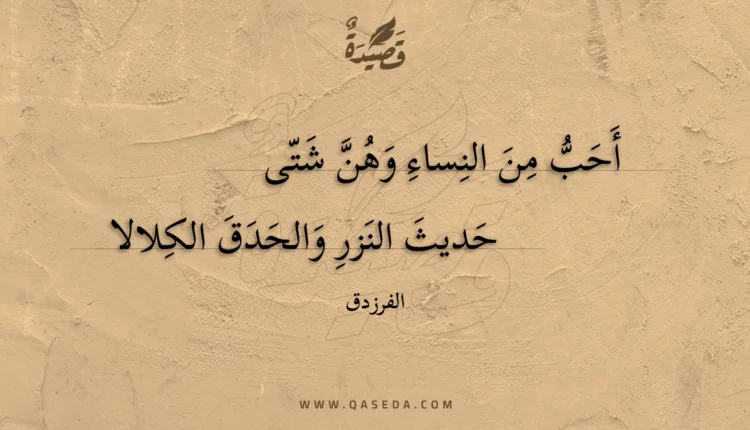 قَصِيدَةٌ
أَحَبُّ مِنَ النِساءِ وَهُنَّ شَتّى
حَديثَ النَزرِ وَالحَدَقَ الكِلالا
الفرزدق
WWW.QASEDA.COM